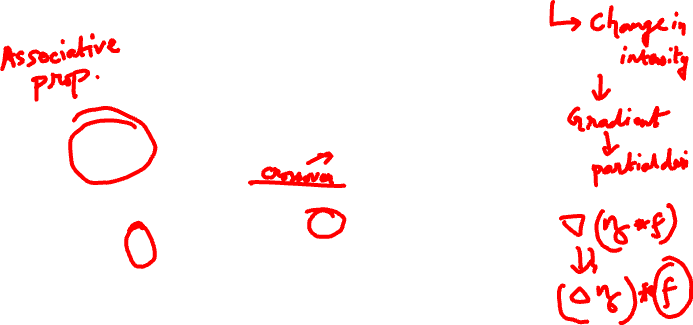 Associative
prop.
Crossover
↳ Change in
intensity
↓
Gradient
↓
partial deri
▽(η * f)
⇓
(△η) * f